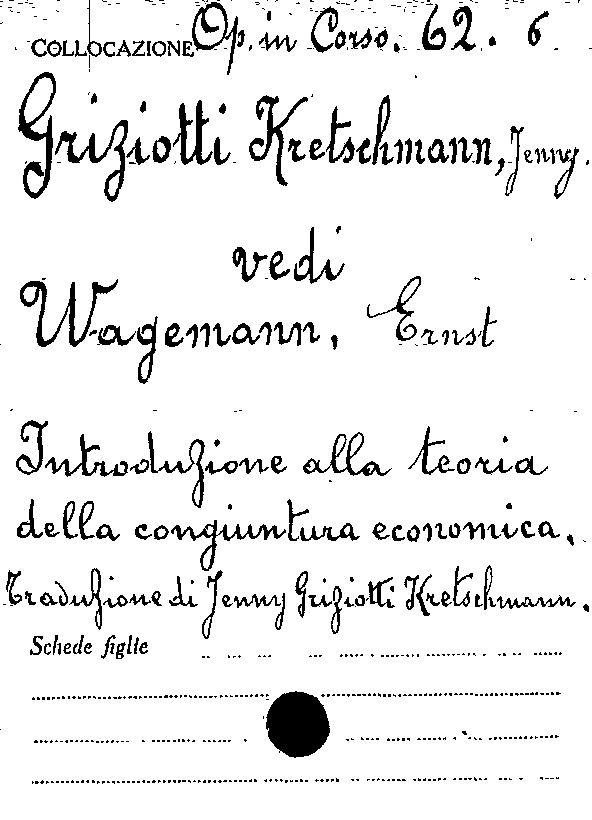 COLLOCAZIONE Op. in Corso. 62. 6
Griziotti Kretschmann, Jenny.
vedi
Wagemann, Ernst
Introduzione alla teoria
della congiuntura economica.
Traduzione di Jenny Griziotti Kretschmann.
Schede figlie